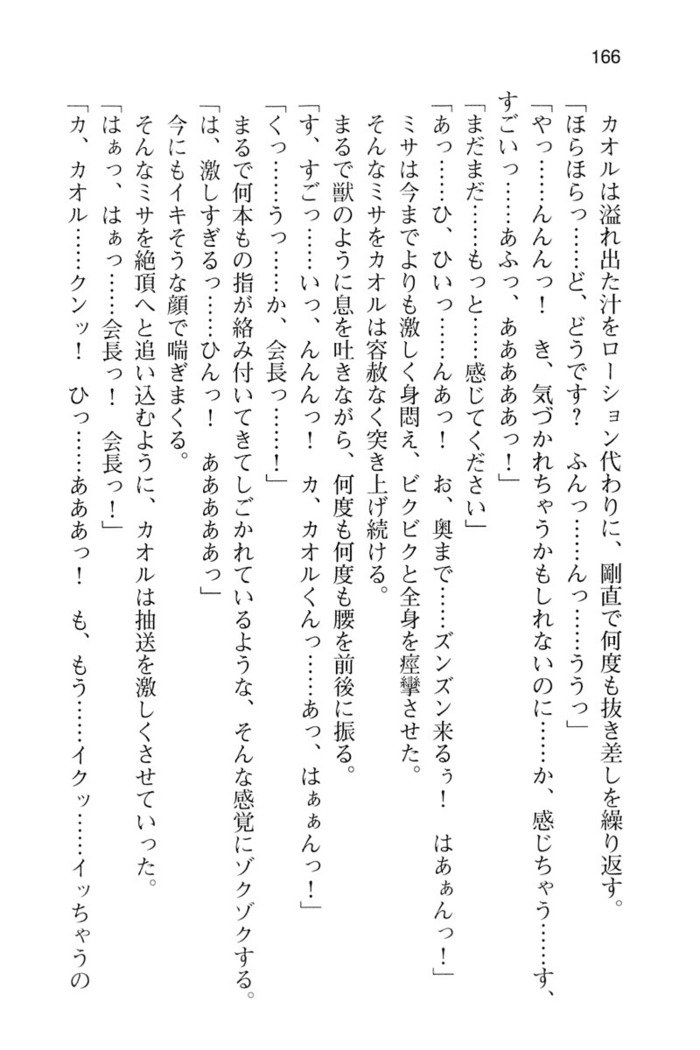 166
カオルは溢れ出た汁をローション代わりに、剛直で何度も抜き差しを繰り返す。
「ほらほらっ……ど、どうです？　ふんっ……んっ……ううっ」
「やっ……んんんっ！　き、気づかれちゃうかもしれないのに……か、感じちゃう……す、
すごいっ……あふっ、あああああっ！」
「まだまだ……もっと……感じてください」
「あっ……ひ、ひいっ……んあっ！　お、奥まで……ズンズン来るぅ！　はあぁんっ！」
ミサは今までよりも激しく身悶え、ビクビクと全身を痙攣させた。
そんなミサをカオルは容赦なく突き上げ続ける。
まるで獣のように息を吐きながら、何度も何度も腰を前後に振る。
「す、すごっ……いっ、んんんっ！　カ、カオルくんっ……あっ、はぁぁんっ！」
「くっ……うっ……か、会長っ……！」
まるで何本もの指が絡み付いてきてしごかれているような、そんな感覚にゾクゾクする。
「は、激しすぎるっ……ひんっ！　あああああっ」
今にもイキそうな顔で喘ぎまくる。
そんなミサを絶頂へと追い込むように、カオルは抽送を激しくさせていった。
「はぁっ、はぁっ……会長っ！　会長っ！」
「カ、カオル……クンッ！　ひっ……あああっ！　も、もう……イクッ……イッちゃうの